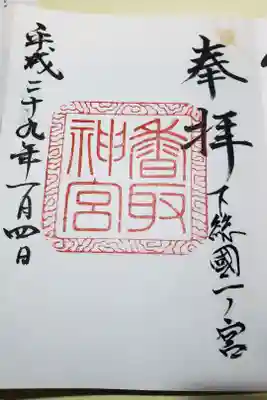 奉拝
下総國一ノ宮
香取
神宮
平成二十九年一月四日